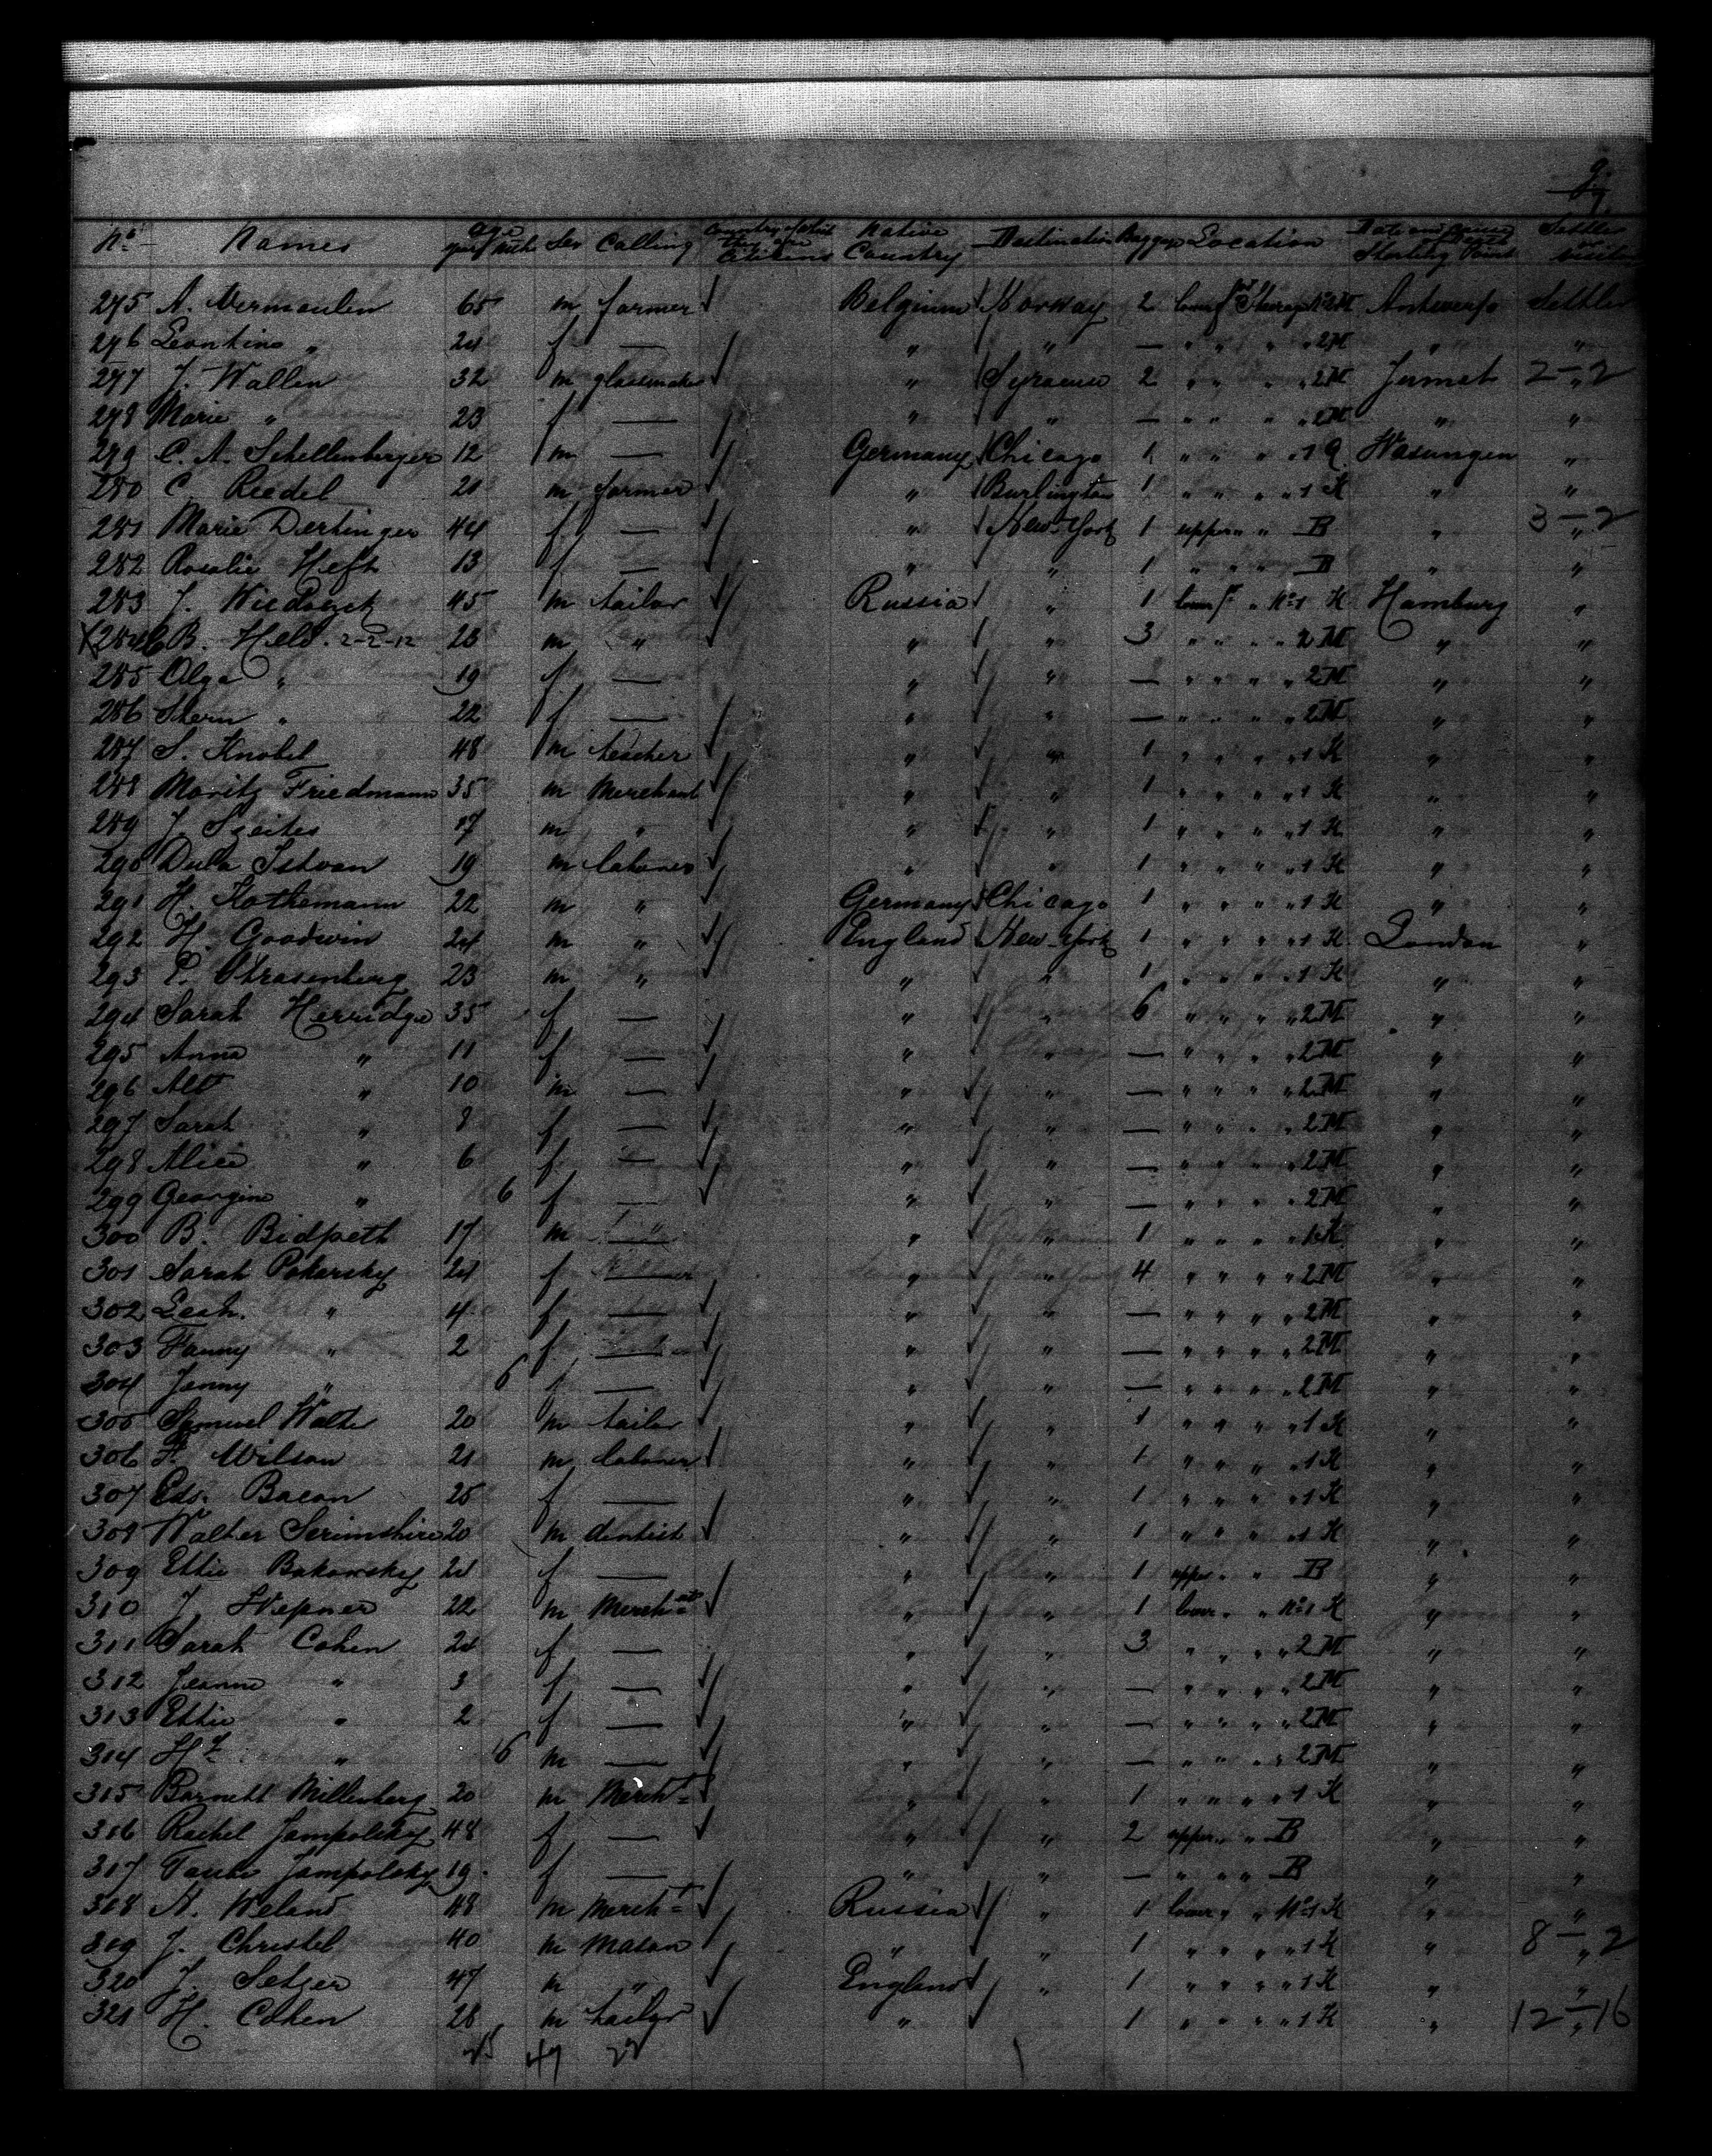 9
No Names age year mth Sex Calling Country of which they are Citizens Native Country Destination Baggage Location Date and cause of Death Starting Point Settler or visitor
275 A. Vermeulen 65 m farmer Belgium Norway 2 lower Steerage No 2 M Antwerp Settler
276 Leontine " 24 f — " " — " " " " 2 M " "
277 J. Wallen 32 m glassmaker " Syracuse 2 " " " " 2 M Jumet 2-2 "
278 Marie " 23 f — " " — " " " " 2 M " "
279 C. A. Schellenberger 12 m — Germany Chicago 1 " " " " 1 Wasungen "
280 C Riedel 21 m farmer " Burlington 1 " " " " 1 K " "
281 Marie Dertinger 44 f — " New-York 1 upper " " B " 3-2 "
282 Rosalie Heft 13 f — " " 1 " " " B " "
283 J. m tailor Russia " 1 lower " No 1 K Hamburg "
X 284 B. Held. 2-2-12 23 m " " " 3 " " " " 2 M " "
285 Olga " 19 f — " " — " " " " 2 M " "
286 " 22 f — " " — " " " " 2 M " "
287 S. Knobel 48 m teacher " " 1 " " " " 1 K " "
288 Moritz Friedmann 35 m Merchant " " 1 " " " " 1 K " "
289 J. Szeites 17 m " " " 1 " " " " 1 K " "
290 Dula Istvan 19 m laborer " " 1 " " " " 1 K " "
291 H. Kothemann 22 m " Germany Chicago 1 " " " " 1 K " "
292 H. Goodwin 24 m " England New-York 1 " " " " 1 K London "
293 Strasenberg 23 m " " " 1 " " " " 1 K " "
294 Sarah Herridge 35 f — " " 6 " " " " 2 M " "
295 Anna " 11 f — " " — " " " " 2 M " "
296 Alb " 10 m — " " — " " " " 2 M " "
297 Sarah " 8 f — " " — " " " " 2 M " "
298 Alice " 6 f — " " — " " " " 2 M " "
299 Georgine " 6 f — " " — " " " " 2 M " "
300 B. Bidpeth 17 m " " " 1 " " " " 1 K " "
301 Sarah Pokorsky 24 f — " " 4 " " " " 2 M " "
302 Leah. " 4 f — " " — " " " " 2 M " "
303 Fanny " 2 f — " " — " " " " 2 M " "
304 Jenny " 6 f — " " — " " " " 2 M " "
305 Samuel Walter 20 m tailor " " 1 " " " " 1 K " "
306 F. Wilson 21 m laborer " " 1 " " " " 1 K " "
307 Eds. Bacon 25 f — " " 1 " " " " 1 K " "
308 Walter Scrimshire 20 m dentist " " 1 " " " " 1 K " "
309 Ettie Bakowsky 21 f — " " 1 upper " " B " "
310 J. Hepner 22 m Mercht " " 1 lower " " No 1 K " "
311 Sarah Cohen 24 f — " " 3 " " " " 2 M " "
312 Jeanne " 3 f — " " — " " " " 2 M " "
313 Ettie " 2 f — " " — " " " " 2 M " "
314 Hy " 6 m — " " — " " " " 2 M " "
315 Barnett Millenberg 20 m Mercht " " 1 " " " " 1 K " "
316 Rachel Jampolsky 48 f — " " 2 upper " " B " "
317 Jampolsky 19 f — " " — " " " B " "
318 A. Weland 48 m Mercht Russia " 1 lower " " No 1 K " "
319 J. Christel 40 m Mason " " 1 " " " " 1 K " 8-2 "
320 J. Setzer 47 m " England " 1 " " " " 1 K " "
321 H. Cohen 28 m tailor " " 1 " " " " 1 K " 12-16 "
47 22